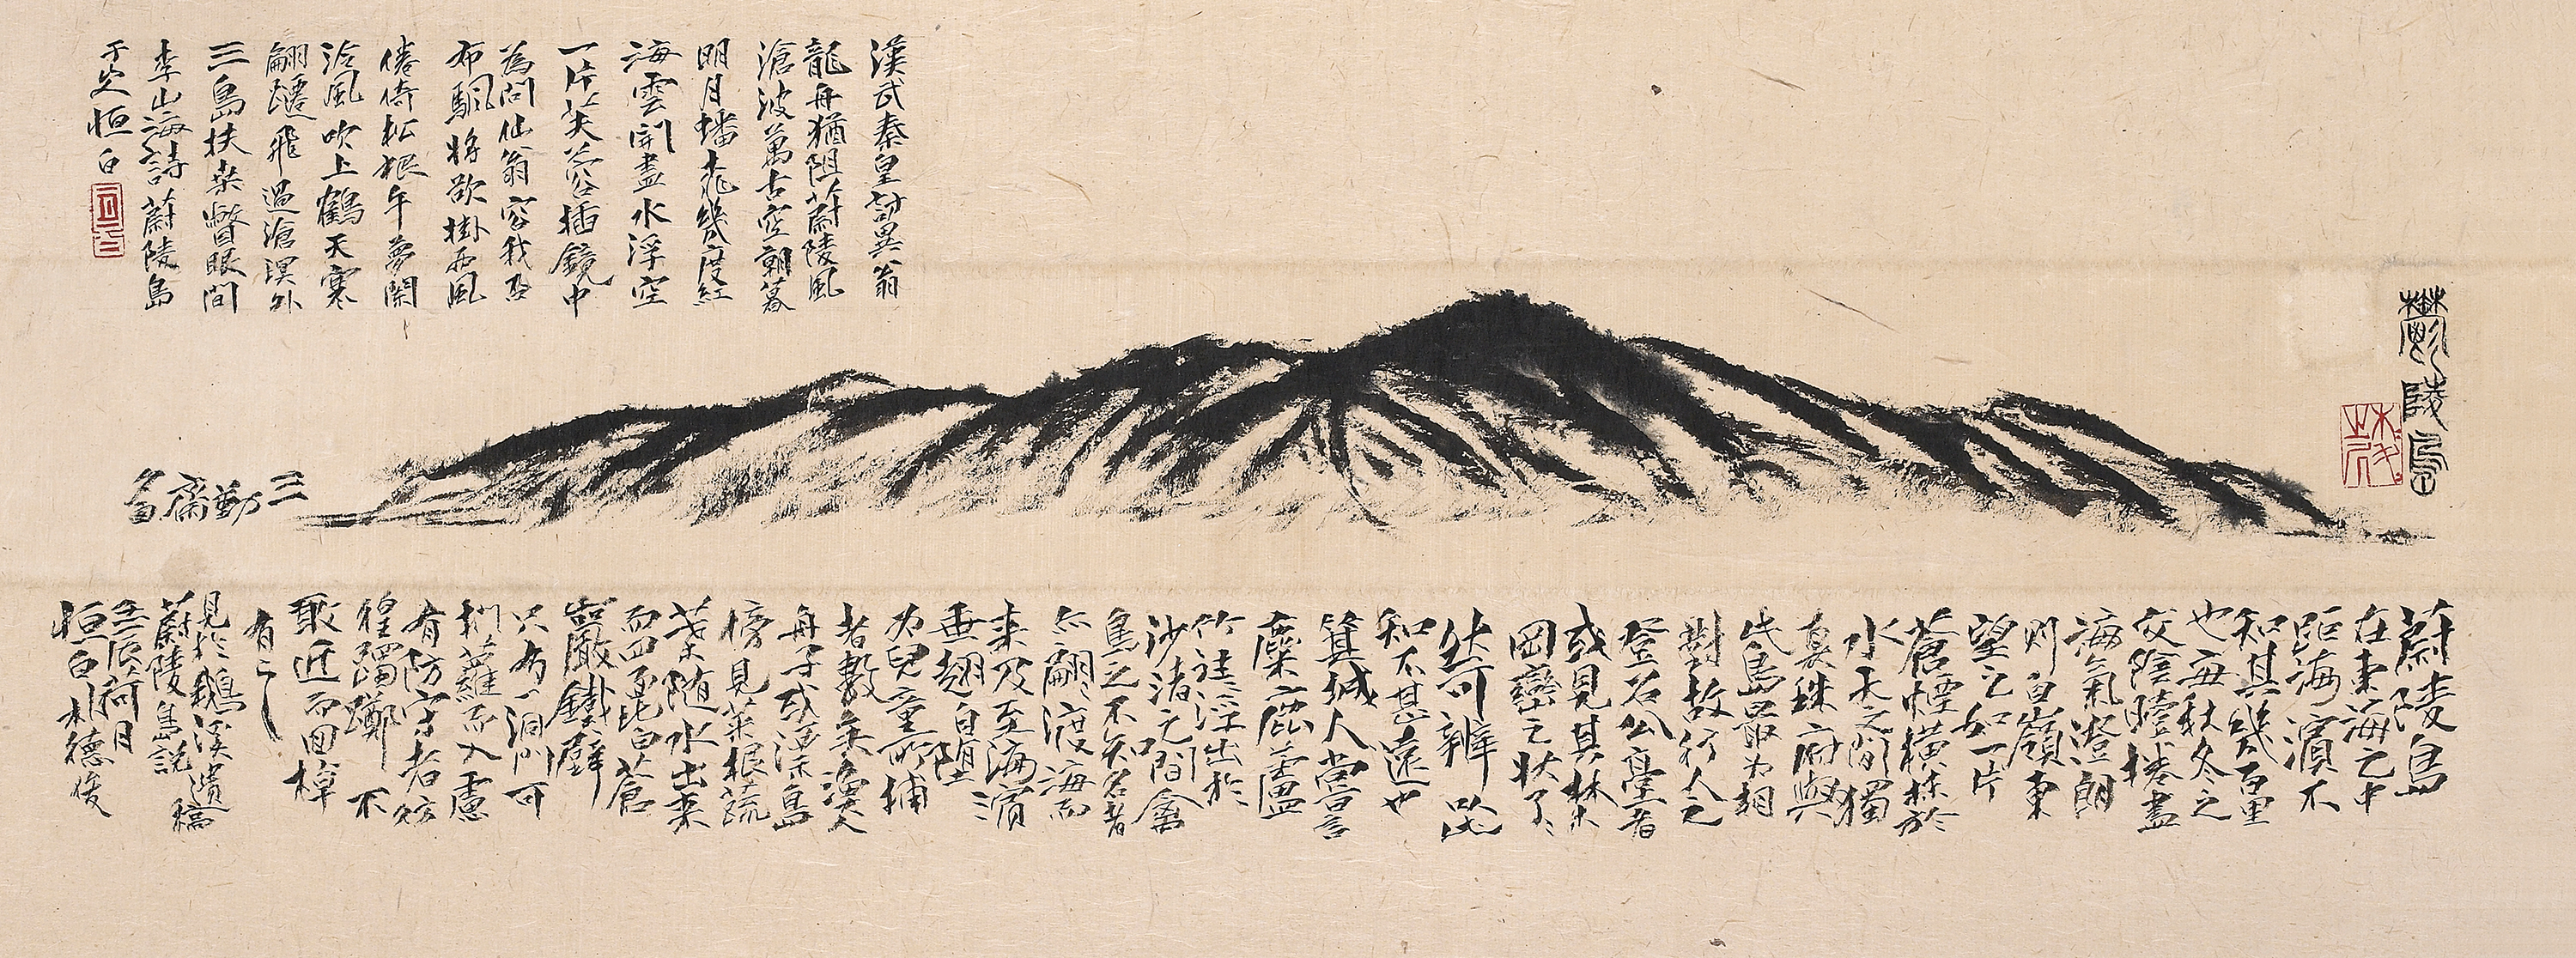 鬱陵島
漢武秦皇討異翁
龍舟猶阻蔚陵風
滄波萬古空朝暮
明月蟠桃幾度紅
海雲開盡水浮空
一片芙蓉插鏡中
為問仙翁容我否
布颿將欲掛西風
倦倚松根午夢闌
泠風吹上鶴天寒
翩躚飛過滄溟外
三島扶桑瞥眼間
李山海詩蔚陵島
恒白
三勤齋
蔚陵島
在東海之中
距海濱不
知其幾百里
也每秋冬之
交陰曀捲盡
海氣澄朗
則自嶺東
望之如一片
蒼煙橫抹於
水天之間獨
真珠府與
此島最為相
對故行人之
登召公臺者
或見其林木
岡巒之狀了〻
然可辨以此
知不甚遠也
箕城人嘗言
麋鹿蘆
竹往〻浮出於
沙渚之間禽
鳥之不知名者
亦翩〻渡海而
來及至海濱
垂翅自墮
為兒童所捕
者數矣漁人
舟子或漂島
傍見菜根蔬
葉隨水出來
而四面皆白蒼
巖鐵壁
只有一洞門可
捫蘿而入慮
有防守者彷
徨躑躅不
敢近而回棹
有之
見於鵝溪遺稿
蔚陵島說
壬辰荷月
恒白朴德俊